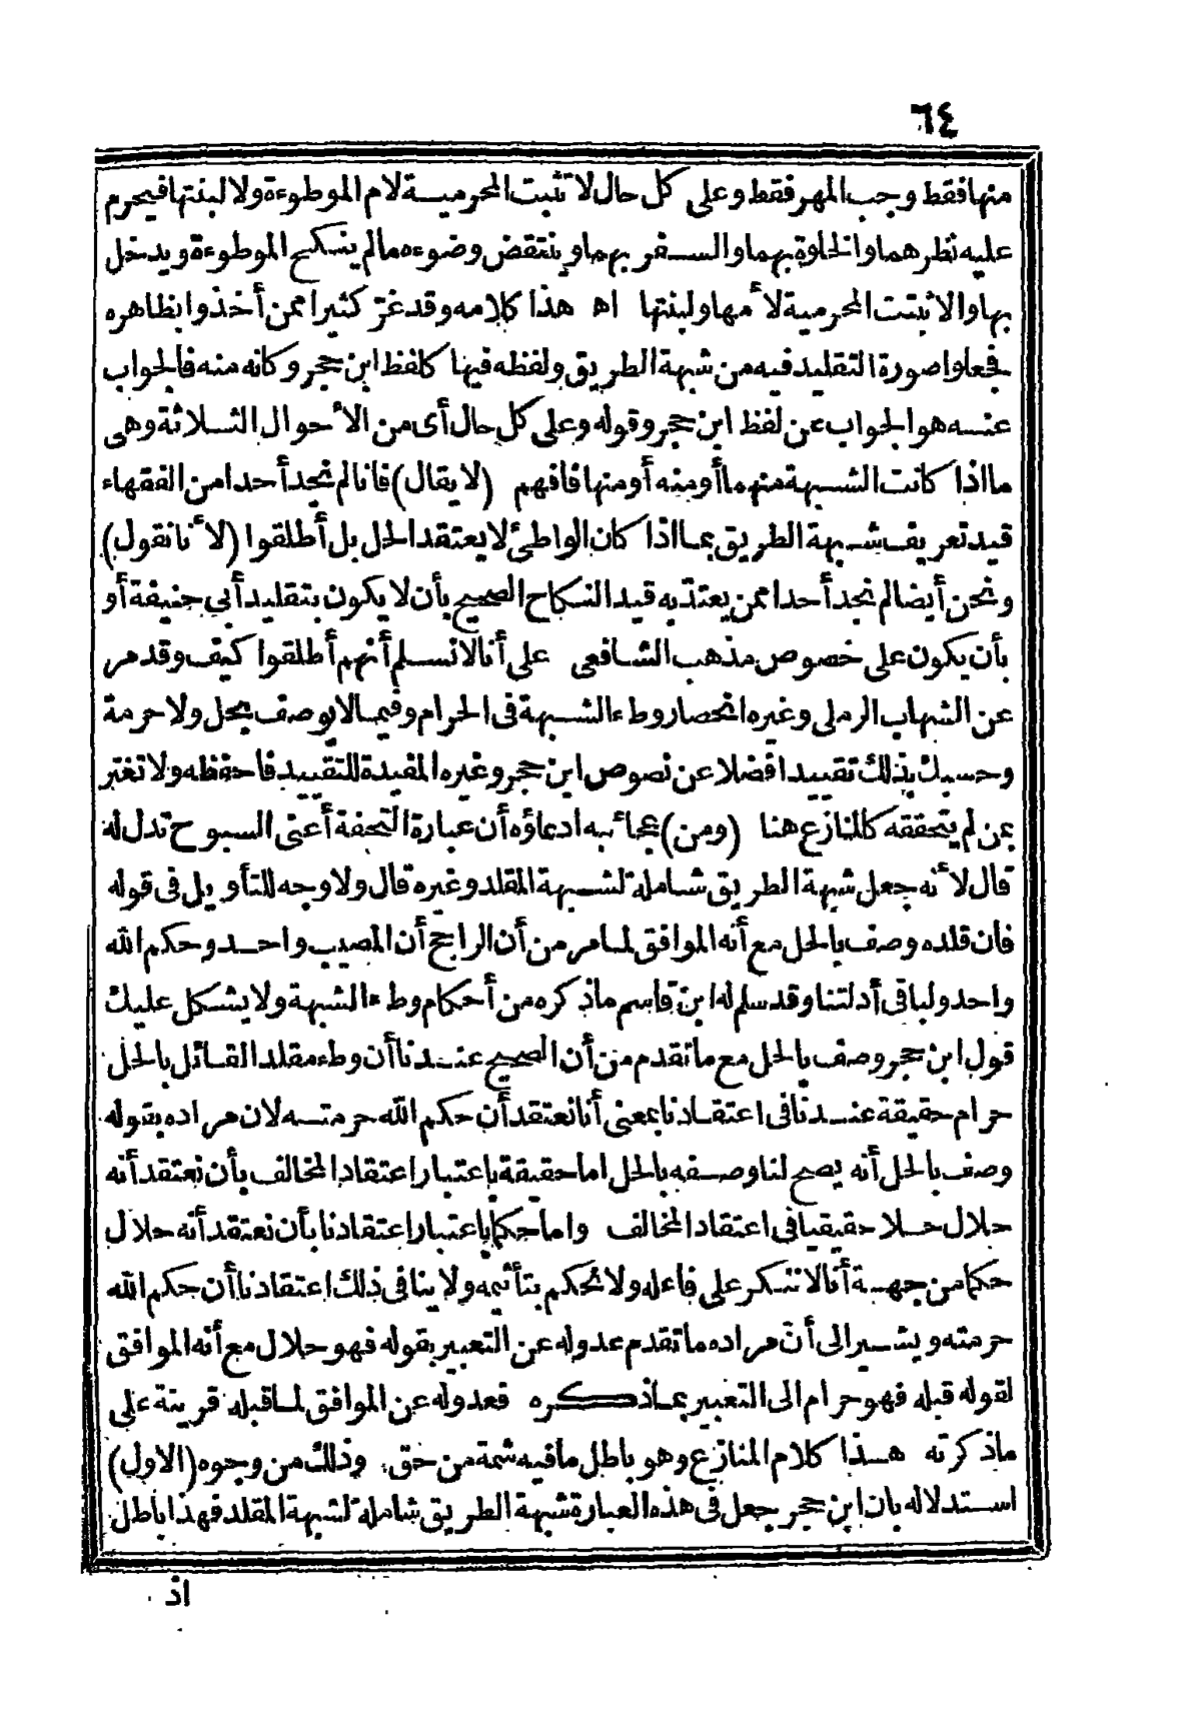 ٦٤
منها فقط وجب المهر فقط وعلى كل حال لا تثبت المحرمية لام الموطوءة ولا لبنتها فيحرم
عليه نظرهما والخلوة بهما والسفر بهما وينتقض وضوءه ما لم ينكح الموطوءة ويدخل
بها والا ثبتت المحرمية لأمها ولبنتها اه هذا كلامه وقد غرّ كثيرا ممن أخذوا بظاهره
فجعلوا صورة التقليد فيه من شبهة الطريق ولفظه فيها كلفظ ابن حجر وكانه منه فالجواب
عنه هو الجواب عن لفظ ابن حجر وقوله وعلى كل حال أى من الأحوال الثلاثة وهى
ما اذا كانت الشبهة منهما أو منه أو منها فافهم (لا يقال) فانا لم نجد أحدا من الفقهاء
قيد تعريف شبهة الطريق بما اذا كان الواطئ لا يعتقد الحل بل أطلقوا (لأنا نقول)
ونحن أيضا لم نجد أحدا ممن يعتدّ به قيد النكاح الصحيح بأن لا يكون بتقليد أبى حنيفة أو
بأن يكون على خصوص مذهب الشافعى على أنا لا نسلم أنهم أطلقوا كيف وقد مر
عن الشهاب الرملى وغيره انحصار وطء الشبهة فى الحرام وفيما لا يوصف بحل ولا حرمة
وحسبك بذلك تقييدا فضلا عن نصوص ابن حجر وغيره المفيدة للتقييد فاحفظه ولا تغتر
بمن لم يتحققه كالمنازع هنا (ومن) عجائبه ادعاؤه أن عبارة التحفة أعنى السبوح تدل له
قال لأنه جعل شبهة الطريق شاملة لشبهة المقلد وغيره قال ولا وجه للتأويل فى قوله
فان قلده وصف بالحل مع أنه الموافق لما مر من أن الراجح أن المصيب واحد وحكم الله
واحد ولباقى أدلتنا وقد سلم له ابن قاسم ما ذكره من أحكام وطء الشبهة ولا يشكل عليك
قول ابن حجر وصف بالحل مع ما تقدم من أن الصحيح عندنا أن وطء مقلد القائل بالحل
حرام حقيقة عندنا فى اعتقادنا بمعنى أنا نعتقد أن حكم الله حرمته لان مراده بقوله
وصف بالحل أنه يصح لنا وصفه بالحل اما حقيقة باعتبار اعتقاد المخالف بأن نعتقد أنه
حلال حلا حقيقيا فى اعتقاد المخالف واما حكما باعتبار اعتقادنا بأن نعتقد أنه حلال
حكما من جهة أنا لا ننكر على فاعله ولا نحكم بتأثيمه ولا ينافى ذلك اعتقادنا أن حكم الله
حرمته ويشير الى أن مراده ما تقدم عدوله عن التعبير بقوله فهو حلال مع أنه الموافق
لقوله قبله فهو حرام الى التعبير بما ذكره فعدوله عن الموافق لما قبله قرينة على
ما ذكرته هذا كلام المنازع وهو باطل ما فيه شمة من حق وذلك من وجوه (الاول)
استدلاله بان ابن حجر جعل فى هذه العبارة شبهة الطريق شاملة لشبهة المقلد فهذا باطل
اذ